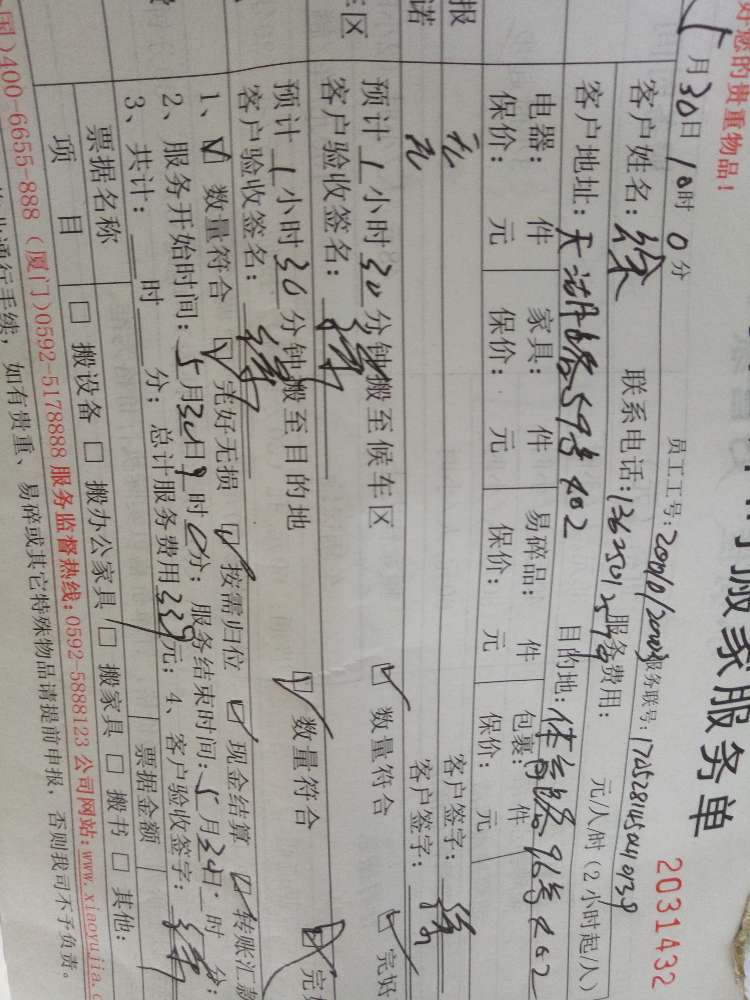 好您的贵重物品！
门搬家服务单
2031432
5月30日10时0分
员工工号：
服务联号：
客户姓名：徐
联系电话：
服务费用：
元/人/时（2小时起/人）
客户地址：
59号402
目的地：体育路96号
电器： 件 家具： 件 易碎品： 件 包裹： 件
保价： 元 保价： 元 保价： 元 保价： 元
报
诺
无
无
客户签字：
客户签字：
车区
预计1小时30分钟搬至候车区
数量符合
完好
客户验收签名：
预计1小时30分钟搬至目的地
数量符合
完好
客户验收签名：
1、数量符合 完好无损 按需归位 现金结算 转账汇款
2、服务开始时间：5月30日9时0分；服务结束时间：5月30日 时 分；
3、共计： 时 分；总计服务费用339元；4、客户验收签字：
票据名称
票据金额
项目
□ 搬设备 □ 搬办公家具 □ 搬家具 □ 搬书 □ 其他：
国)400-6655-888 (厦门)0592-5178888 服务监督热线:0592-5888123 公司网站:www.xiaoyujia.c
通行手续，如有贵重、易碎或其它特殊物品请提前申报，否则我司不予负责。